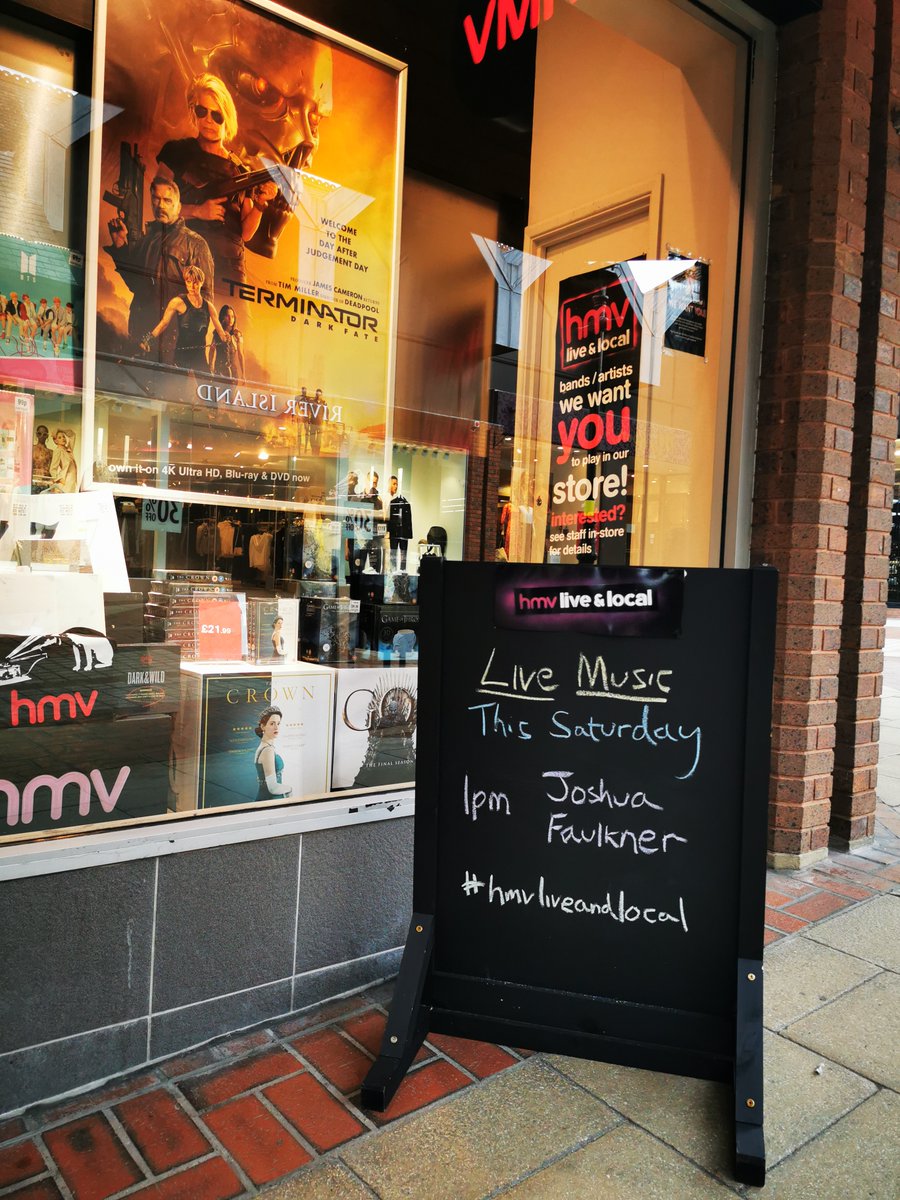 VMH
WELCOME
TO THE
DAY AFTER
JUDGEMENT DAY
PRODUCER JAMES CAMERON RETURNS
FROM TIM MILLER DIRECTOR OF DEADPOOL
TERMINATOR
DARK FATE
RIVER ISLAND
own it on 4K Ultra HD, Blu-ray & DVD now
BTS
99p
30%
30%
hmv
live & local
bands / artists
we want
you
to play in our
store!
interested?
see staff in-store
for details
THE CROWN
£21.99
GAME OF THRONES
DARK & WILD
hmv
hmv
CROWN
THE FINAL SEASON
hmv live & local
Live Music
This Saturday
1pm Joshua
Faulkner
#hmvliveandlocal